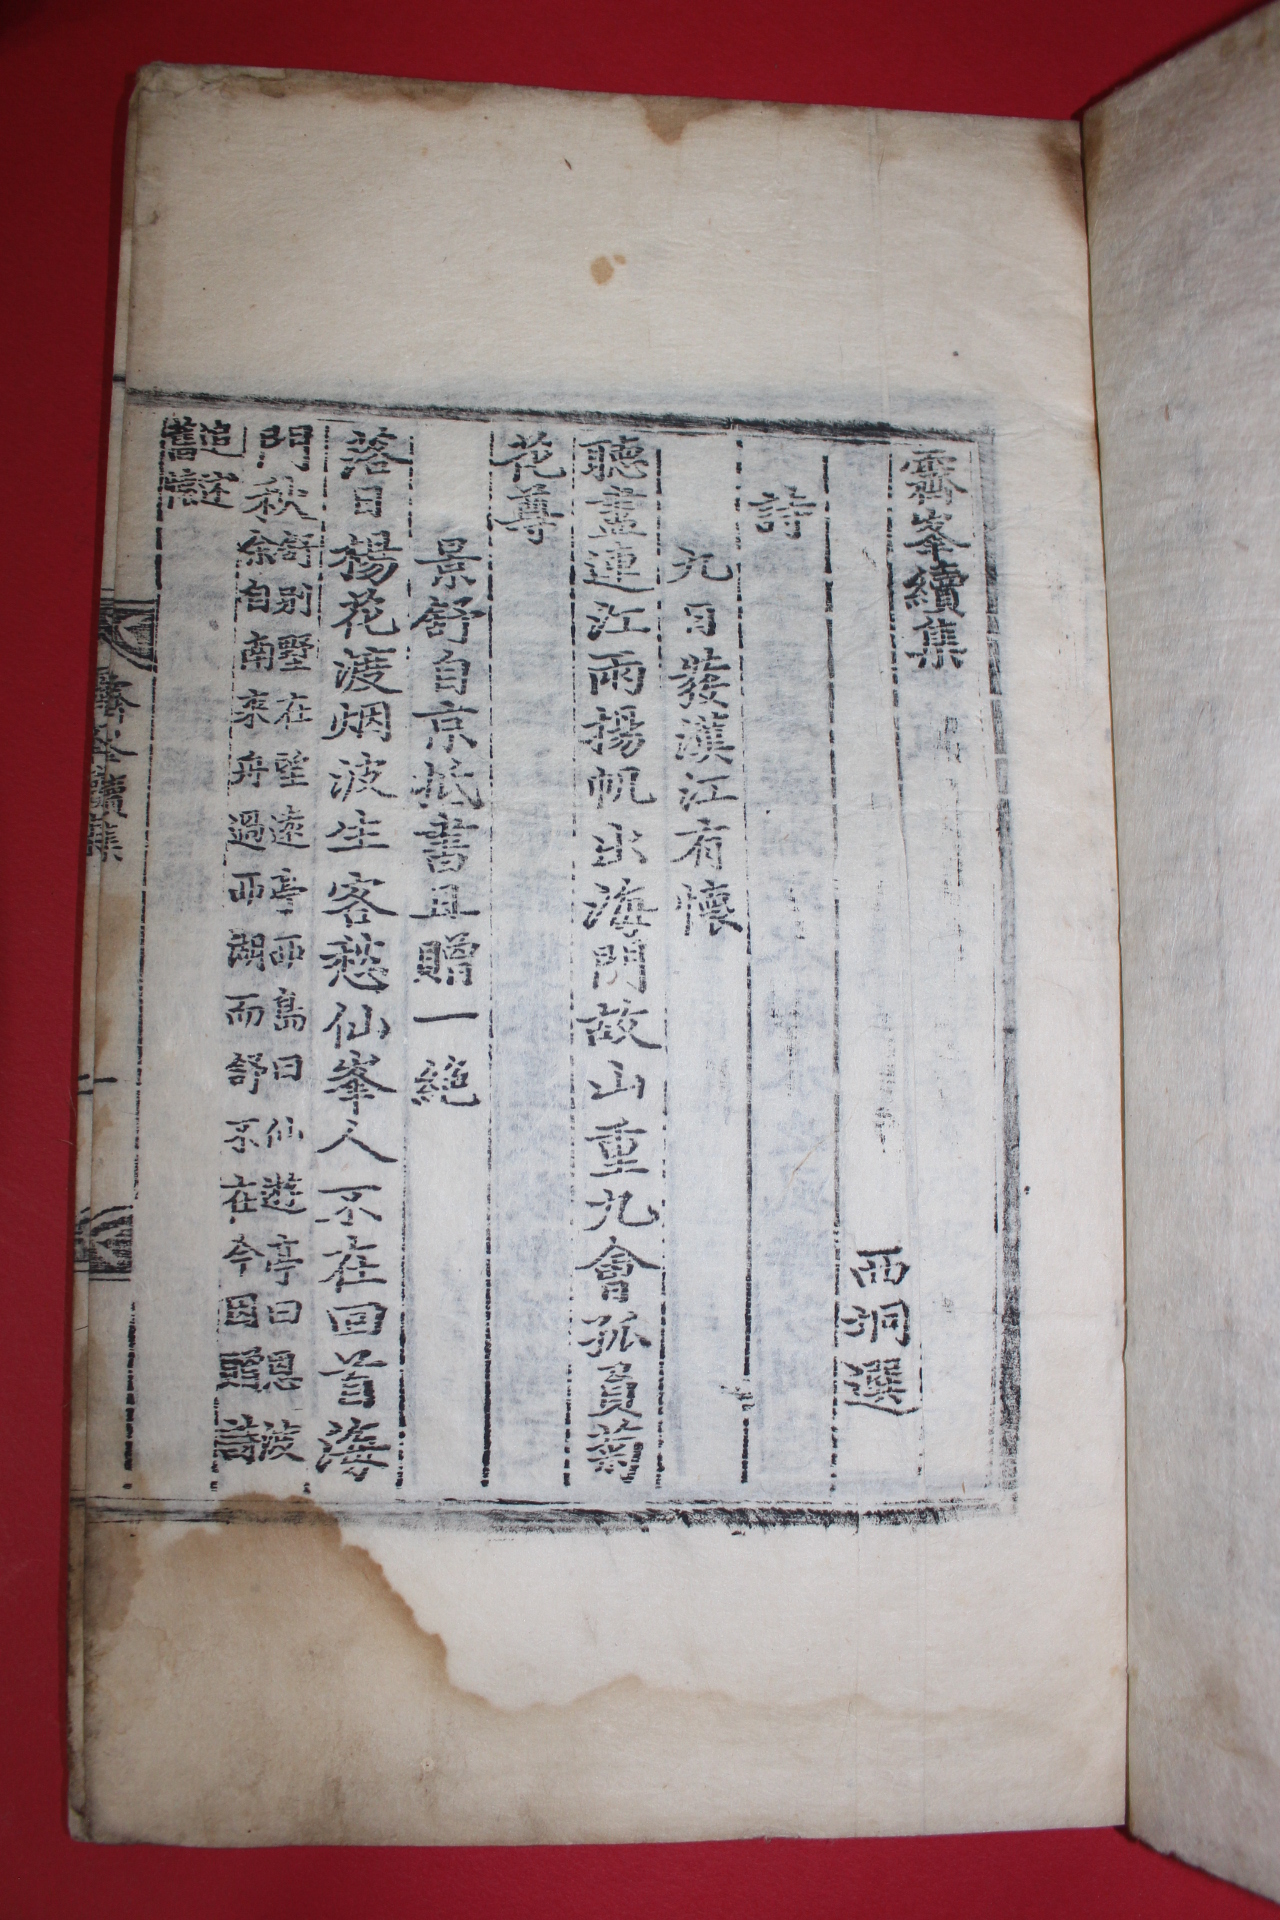 霽峯續集
西洞選
詩
九日發漢江有懷
聽盡連江雨揚帆出海門故山重九會孤負菊
花尊
景舒自京抵書且贈一絕
落日楊花渡烟波生客愁仙峯人不在回首海
門秋
舒別墅在望遠亭西島曰仙遊亭曰恩波
余自南來舟過西湖而舒不在今因贈詩
追定
舊
霽峯續集
一